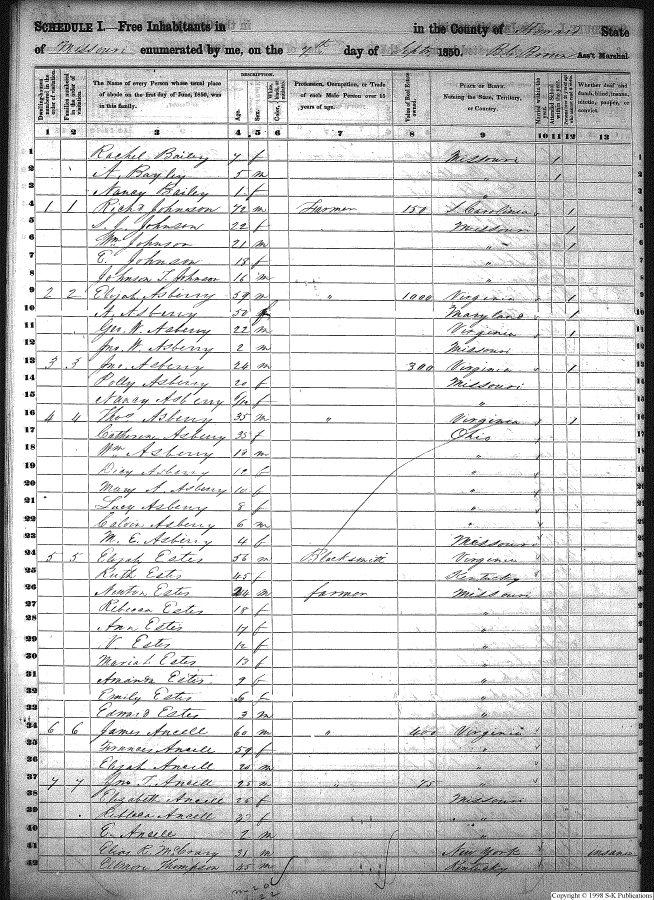 SCHEDULE I. Free Inhabitants in in the County of State
of Missouri enumerated by me, on the 7th day of Septr 1850. Ass't Marshal.
DESCRIPTION.
Dwelling-houses numbered in the order of visitation.
Families numbered in the order of visitation.
The Name of every Person whose usual place of abode on the first day of June, 1850, was in this family.
Age.
Sex.
Color,
Profession, Occupation, or Trade of each Male Person over 15 years of age.
Value of Real Estate owned.
PLACE OF BIRTH. Naming the State, Territory, or Country.
Married within the year.
Attended School within the year.
Whether deaf and dumb, blind, insane, idiotic, pauper, or convict.
1 2 3 4 5 6 7 8 9 10 11 12 13
1 Rachel Bailey 7 f Missouri 1
2 A. Bayley 5 m " 1
3 Nancy Bailey 1 f "
4 1 1 Richd Johnson 72 m Farmer 150 S. Carolina 1
5 Johnson 22 f Missouri 1
6 Wm Johnson 21 m " 1
7 E. Johnson 18 f "
8 Johnson T. Johnson 16 m "
9 2 2 Elijah Asberry 59 m " 1000 Virginia 1
10 A. Asberry 50 f Maryland 1
11 Geo. W. Asberry 22 m Virginia 1
12 Jno. W. Asberry 2 m Missouri
13 3 3 Jno. Asberry 24 m 300 Virginia 1
14 Polly Asberry 20 f Missouri
15 Nancy Asberry f "
16 4 4 Thos Asberry 35 m " Virginia 1
17 Catherine Asberry 35 f Ohio
18 Wm Asberry m "
19 Dicy Asberry 12 f "
20 Mary A. Asberry 10 f "
21 Lucy Asberry 8 f "
22 Calvin Asberry 6 m "
23 M. E. Asberry 4 f Missouri
24 5 5 Elijah Estes 56 m Blacksmith Virginia
25 Ruth Estes 45 f Kentucky
26 Newton Estes 24 m farmer Missouri
27 Rebecca Estes 18 f "
28 Ann Estes 17 f "
29 V. Estes f "
30 Mariah Estes 13 f "
31 Amanda Estes 9 f "
32 Emily Estes 6 f "
33 Edward Estes 3 m "
34 6 6 James Ancell 60 m " 400 Virginia
35 Frances Ancell 59 f "
36 Elijah Ancell 20 m "
37 7 7 Wm. T. Ancell 25 m " 75 "
38 Elizabeth Ancell 26 f Missouri
39 Rebecca Ancell f "
40 E. Ancell 2 m "
41 Elias R. McCrary 31 m New York insane
42 Thompson 45 m Kentucky
m-20
22
Copyright © 1998 S-K Publications